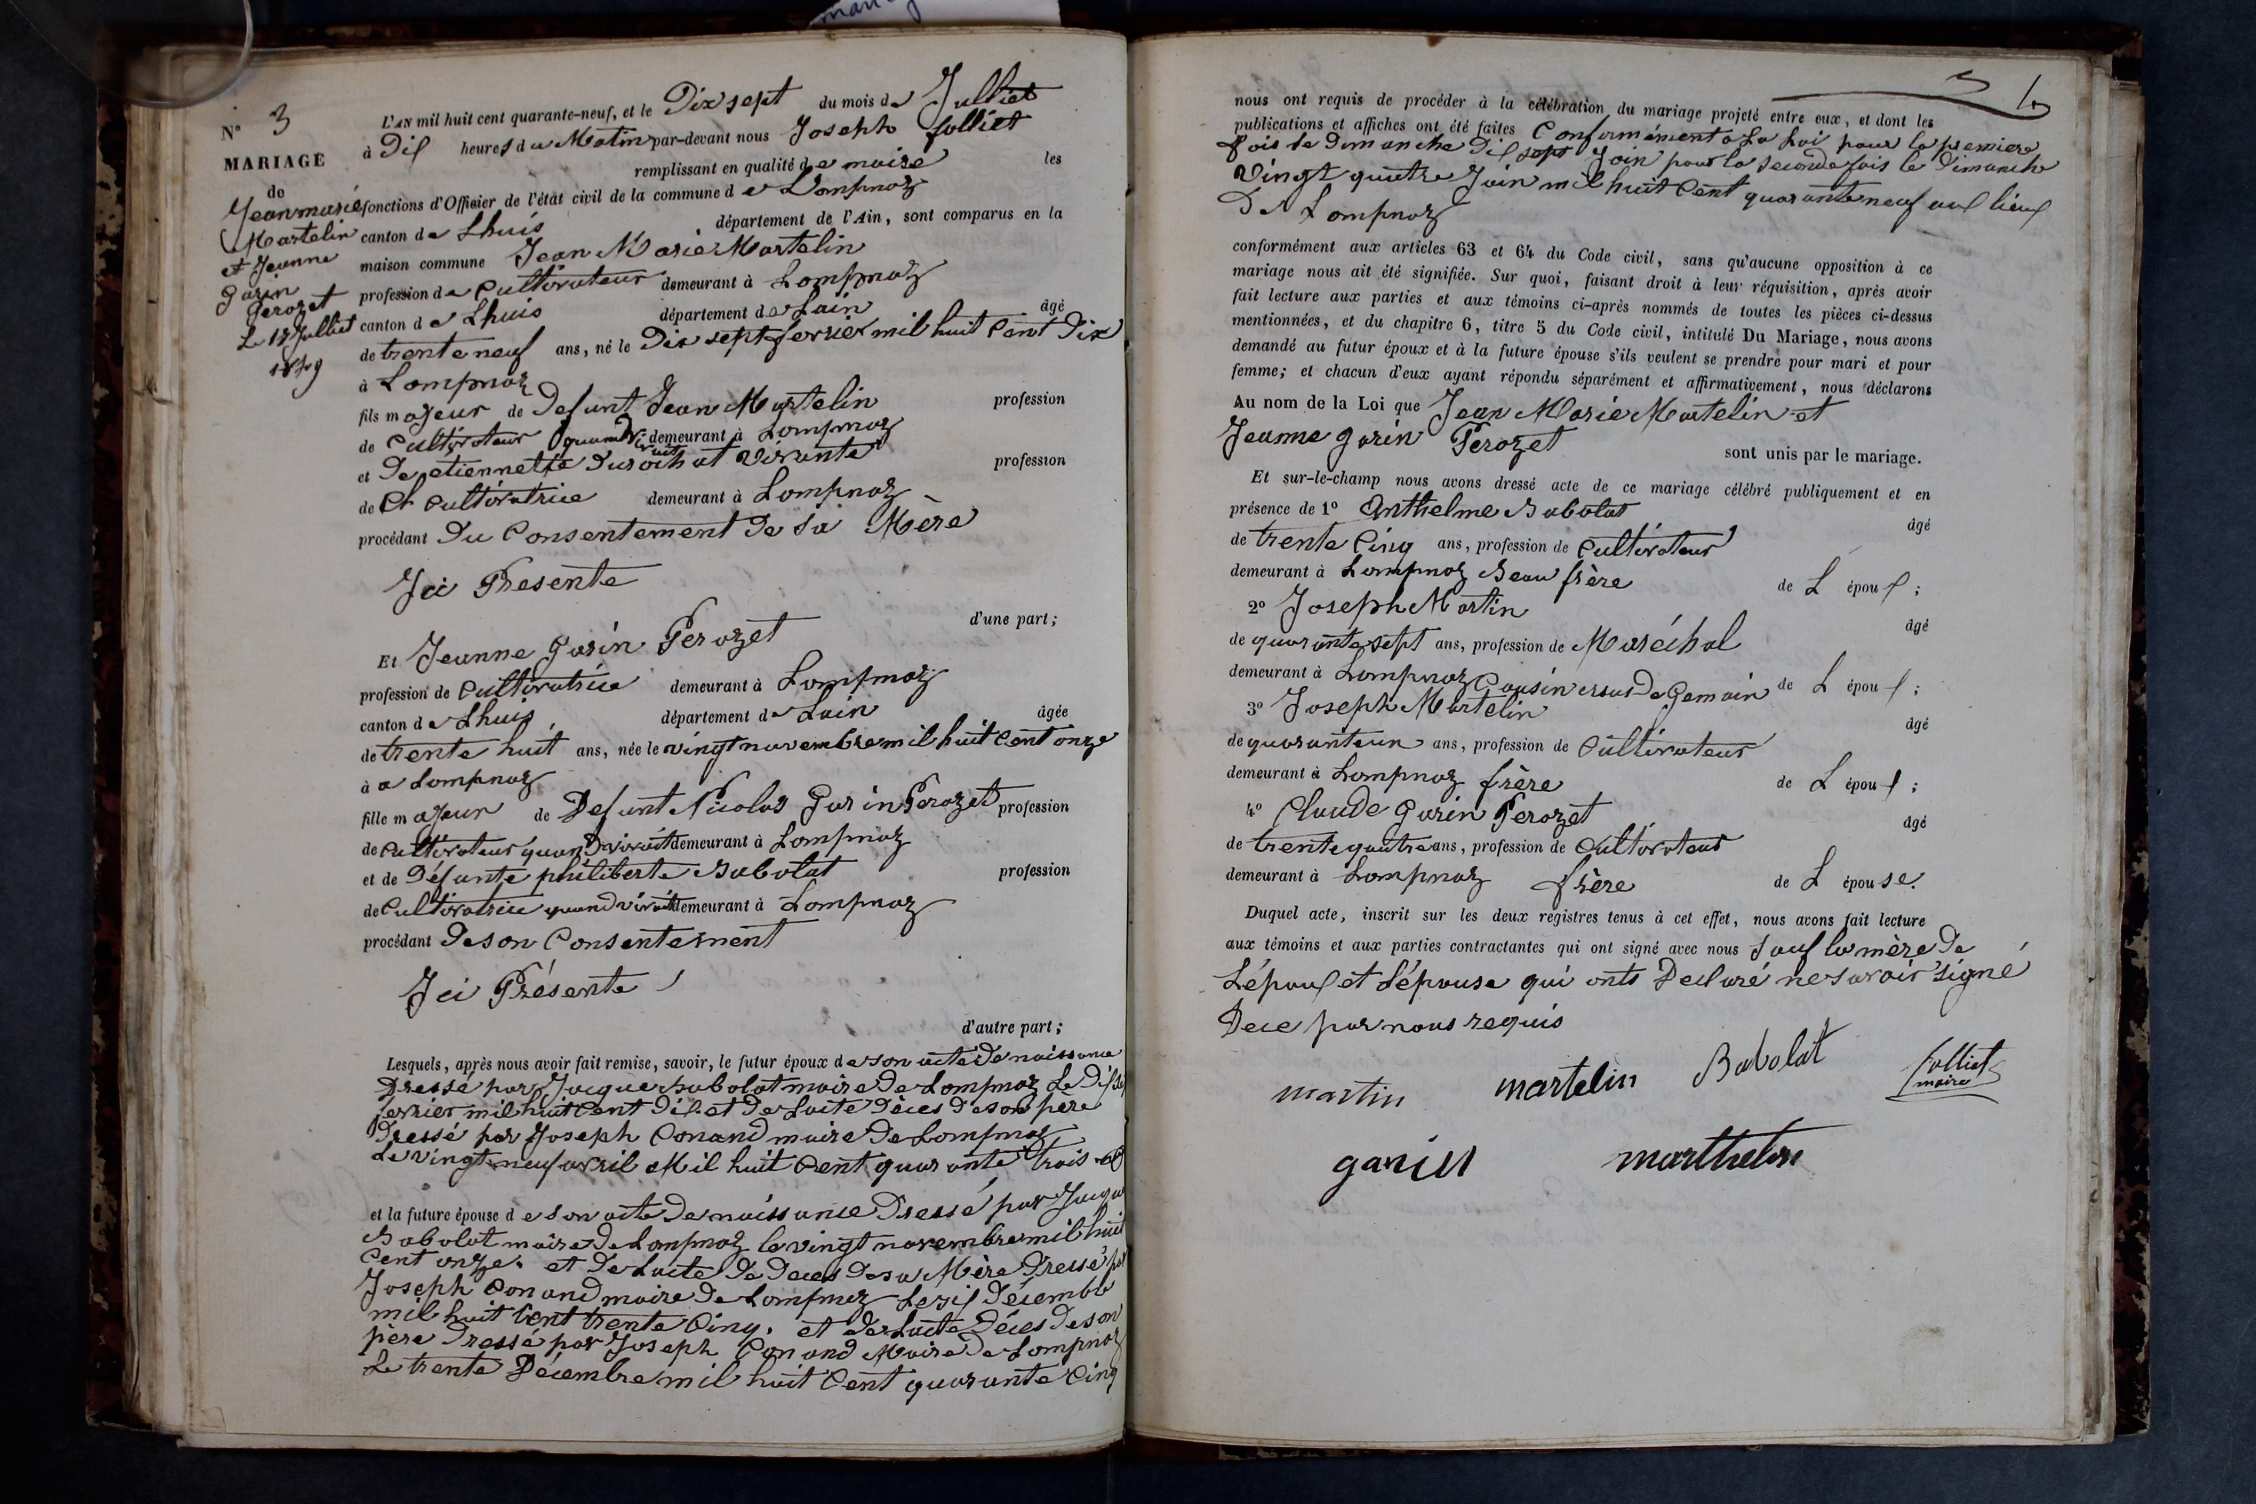 N° 3
MARIAGE
de
Jean marie
Martelin
et Jeanne
garin
Perozet
Le 17 Julliet
1849
L'AN mil huit cent quarante-neuf, et le Dix sept du mois de Julliet
à Dix heures du Matin par-devant nous Joseph folliet
remplissant en qualité de maire les
fonctions d'Officier de l'état civil de la commune de Lompnaz
canton de Lhuis département de l'Ain, sont comparus en la
maison commune Jean Marie Martelin
profession de Cultivateur demeurant à Lompnaz
canton de Lhuis département de Lain âgé
de trente neuf ans, né le Dix sept fevrier mil huit Cent Dix
à Lompnaz
fils majeur de Defunt Jean Martelin profession
de Cultivateur quand vivait demeurant à Lompnaz
et De etiennette Durochat vivante profession
de Et Cultivatrice demeurant à Lompnaz
procédant Du Consentement De Sa Mère
Ici Presente
d'une part;
Et Jeanne Garin Perozet
profession de Cultivatrice demeurant à Lompnaz
canton de Lhuis département de Lain âgée
de trente huit ans, née le vingt novembre mil huit Cent onze
à a Lompnaz
fille majeur de Defunt Nicolas Garin Perozet profession
de Cultivateur quand vivait demeurant à Lompnaz
et de Défunte philiberte Babolat profession
de Cultivatrice quand vivait demeurant à Lompnaz
procédant De son Consentement
Ici Présente
d'autre part;
Lesquels, après nous avoir fait remise, savoir, le futur époux de son acte de naissance
Dressé par Jacque Babolat maire De Lompnaz Le Dix sept
fevrier mil huit Cent Dix et De Lacte Dèces De son père
Dressé par Joseph Conand maire De Lompnaz
Le vingt neuf avril Mil huit Cent quarante trois
et la future épouse de son acte De naissance Dressé par Jacque
Babolat maire De Lompnaz le vingt novembre mil huit
Cent onze. et De Lacte De Deces De sa Mère Dressé par
Joseph Conand maire De Lompnaz Le six Décembre
mil huit Cent trente Cinq. et De Lacte Déces De son
père Dressé par Joseph Conand Maire De Lompnaz
Le trente Décembre mil huit Cent quarante Cinq
nous ont requis de procéder à la célébration du mariage projeté entre eux, et dont les
publications et affiches ont été faites Conformément à La Loi pour la premiere
fois le Dimanche Dix sept Join pour la seconde fois le Dimanche
vingt quatre Join mil huit Cent quarante neuf aux lieux
De Lompnaz
conformément aux articles 63 et 64 du Code civil, sans qu'aucune opposition à ce
mariage nous ait été signifiée. Sur quoi, faisant droit à leur réquisition, après avoir
fait lecture aux parties et aux témoins ci-après nommés de toutes les pièces ci-dessus
mentionnées, et du chapitre 6, titre 5 du Code civil, intitulé Du Mariage, nous avons
demandé au futur époux et à la future épouse s'ils veulent se prendre pour mari et pour
femme; et chacun d'eux ayant répondu séparément et affirmativement, nous déclarons
Au nom de la Loi que Jean Marie Martelin et
Jeanne garin Perozet sont unis par le mariage.
Et sur-le-champ nous avons dressé acte de ce mariage célébré publiquement et en
présence de 1° Anthelme Babolat âgé
de trente Cinq ans, profession de Cultivateur
demeurant à Lompnaz Beau frère de L époux;
2° Joseph Martin âgé
de quarante sept ans, profession de Maréchal
demeurant à Lompnaz Cousin issus De Gemain de L époux;
3° Joseph Martelin âgé
de quarante un ans, profession de Cultivateur
demeurant à Lompnaz frère de L époux;
4° Claude Garin Perozet âgé
de trente quatre ans, profession de Cultivateur
demeurant à Lompnaz frère de L épouse.
Duquel acte, inscrit sur les deux registres tenus à cet effet, nous avons fait lecture
aux témoins et aux parties contractantes qui ont signé avec nous Sauf la mère De
L'époux et L'épouse qui onts Declaré ne savoir signé
Dece par nous requis
martin martelin Babolat folliet
maire
garin marthelin